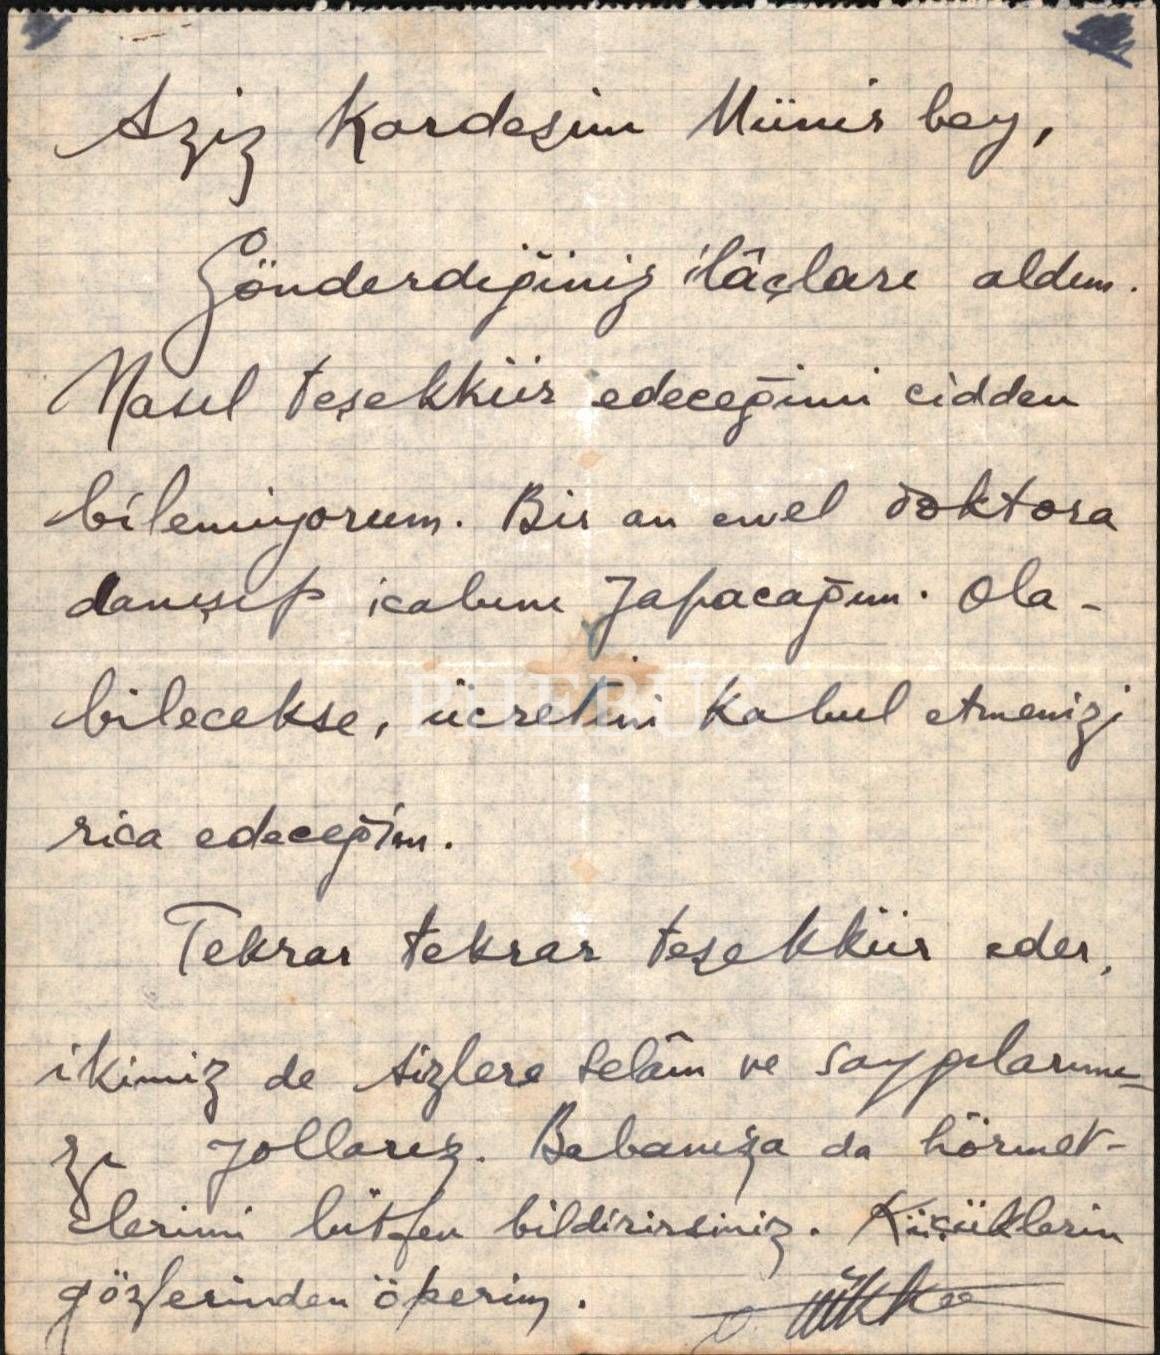 Aziz Kardeşim Münir bey,
Gönderdiğiniz ilâçları aldım.
Nasıl teşekkür edeceğimi cidden
bilemiyorum. Bir an evvel doktora
danışıp icabını yapacağım. Ola-
bilecekse, ücretini kabul etmenizi
rica edeceğim.
Tekrar tekrar teşekkür eder,
ikimiz de sizlere selâm ve saygılarımı-
zı yollarız. Babanıza da hörmet-
lerimi lütfen bildirirsiniz. Küçüklerin
gözlerinden öperim.
PHEBUS